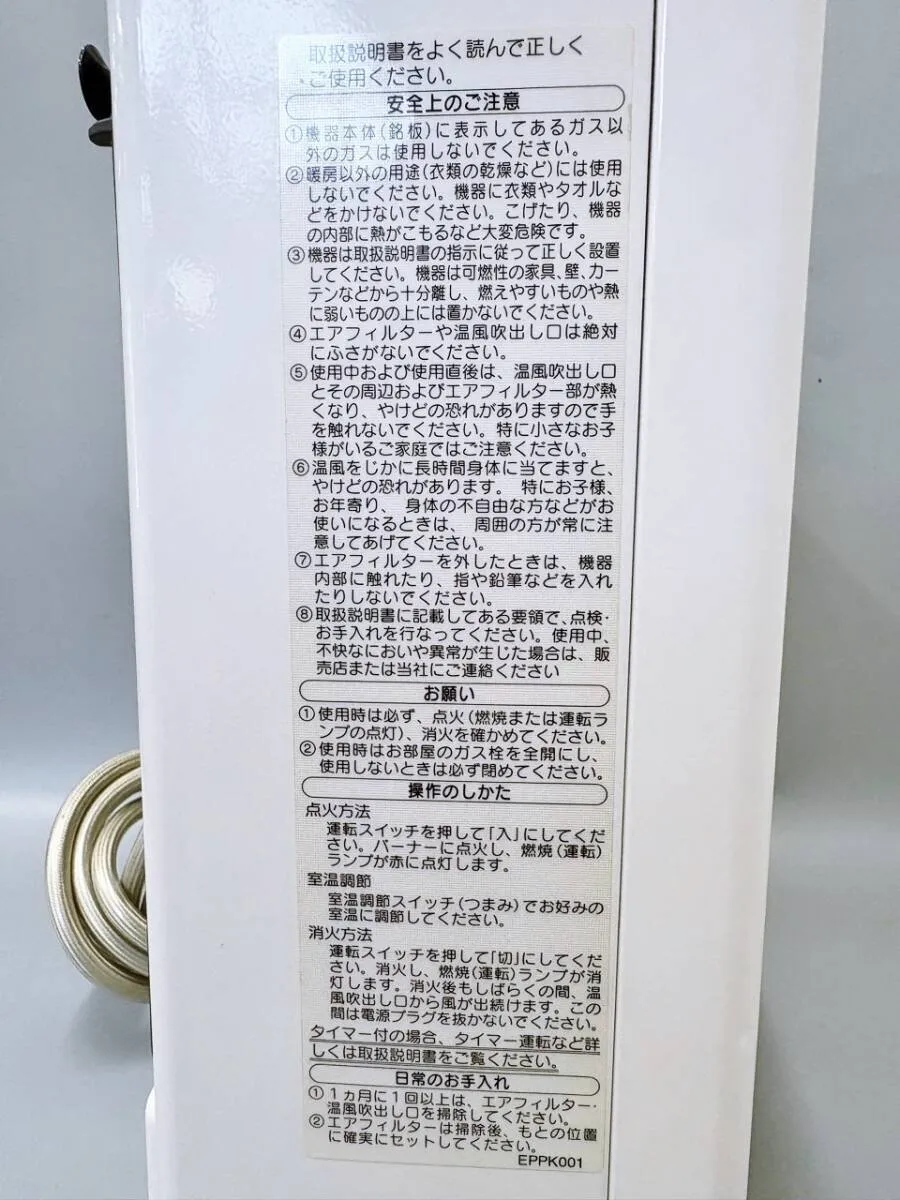 取扱説明書をよく読んで正しく
ご使用ください。
安全上のご注意
①機器本体(銘板)に表示してあるガス以
外のガスは使用しないでください。
②暖房以外の用途(衣類の乾燥など)には使用
しないでください。機器に衣類やタオルな
どをかけないでください。こげたり、機器
の内部に熱がこもるなど大変危険です。
③機器は取扱説明書の指示に従って正しく設置
してください。機器は可燃性の家具、壁、カー
テンなどから十分離し、燃えやすいものや熱
に弱いものの上には置かないでください。
④エアフィルターや温風吹出し口は絶対
にふさがないでください。
⑤使用中および使用直後は、温風吹出し口
とその周辺およびエアフィルター部が熱
くなり、やけどの恐れがありますので手
を触れないでください。特に小さなお子
様がいるご家庭ではご注意ください。
⑥温風をじかに長時間身体に当てますと、
やけどの恐れがあります。特にお子様、
お年寄り、身体の不自由な方などがお
使いになるときは、周囲の方が常に注
意してあげてください。
⑦エアフィルターを外したときは、機器
内部に触れたり、指や鉛筆などを入れ
たりしないでください。
⑧取扱説明書に記載してある要領で、点検・
お手入れを行なってください。使用中、
不快なにおいや異常が生じた場合は、販
売店または当社にご連絡ください
お願い
①使用時は必ず、点火(燃焼または運転ラ
ンプの点灯)、消火を確かめてください。
②使用時はお部屋のガス栓を全開にし、
使用しないときは必ず閉めてください。
操作のしかた
点火方法
運転スイッチを押して「入」にしてくだ
さい。バーナーに点火し、燃焼(運転)
ランプが赤に点灯します。
室温調節
室温調節スイッチ(つまみ)でお好みの
室温に調節してください。
消火方法
運転スイッチを押して「切」にしてくだ
さい。消火し、燃焼(運転)ランプが消
灯します。消火後もしばらくの間、温
風吹出し口から風が出続けます。この
間は電源プラグを抜かないでください。
タイマー付の場合、タイマー運転など詳
しくは取扱説明書をご覧ください。
日常のお手入れ
①1ヵ月に1回以上は、エアフィルター・
温風吹出し口を掃除してください。
②エアフィルターは掃除後、もとの位置
に確実にセットしてください。
EPPK001